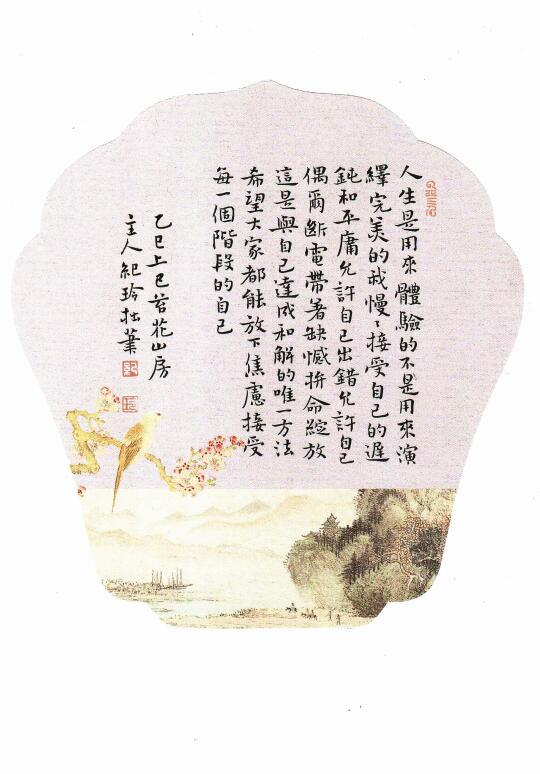 人生是用來體驗的不是用來演
繹完美的我慢慢接受自己的遲
鈍和平庸允許自己出錯允許自己
偶爾斷電帶著缺憾拚命綻放
這是與自己達成和解的唯一方法
希望大家都能放下焦慮接受
每一個階段的自己
乙巳上巳苔花山房
主人紀玲拙筆